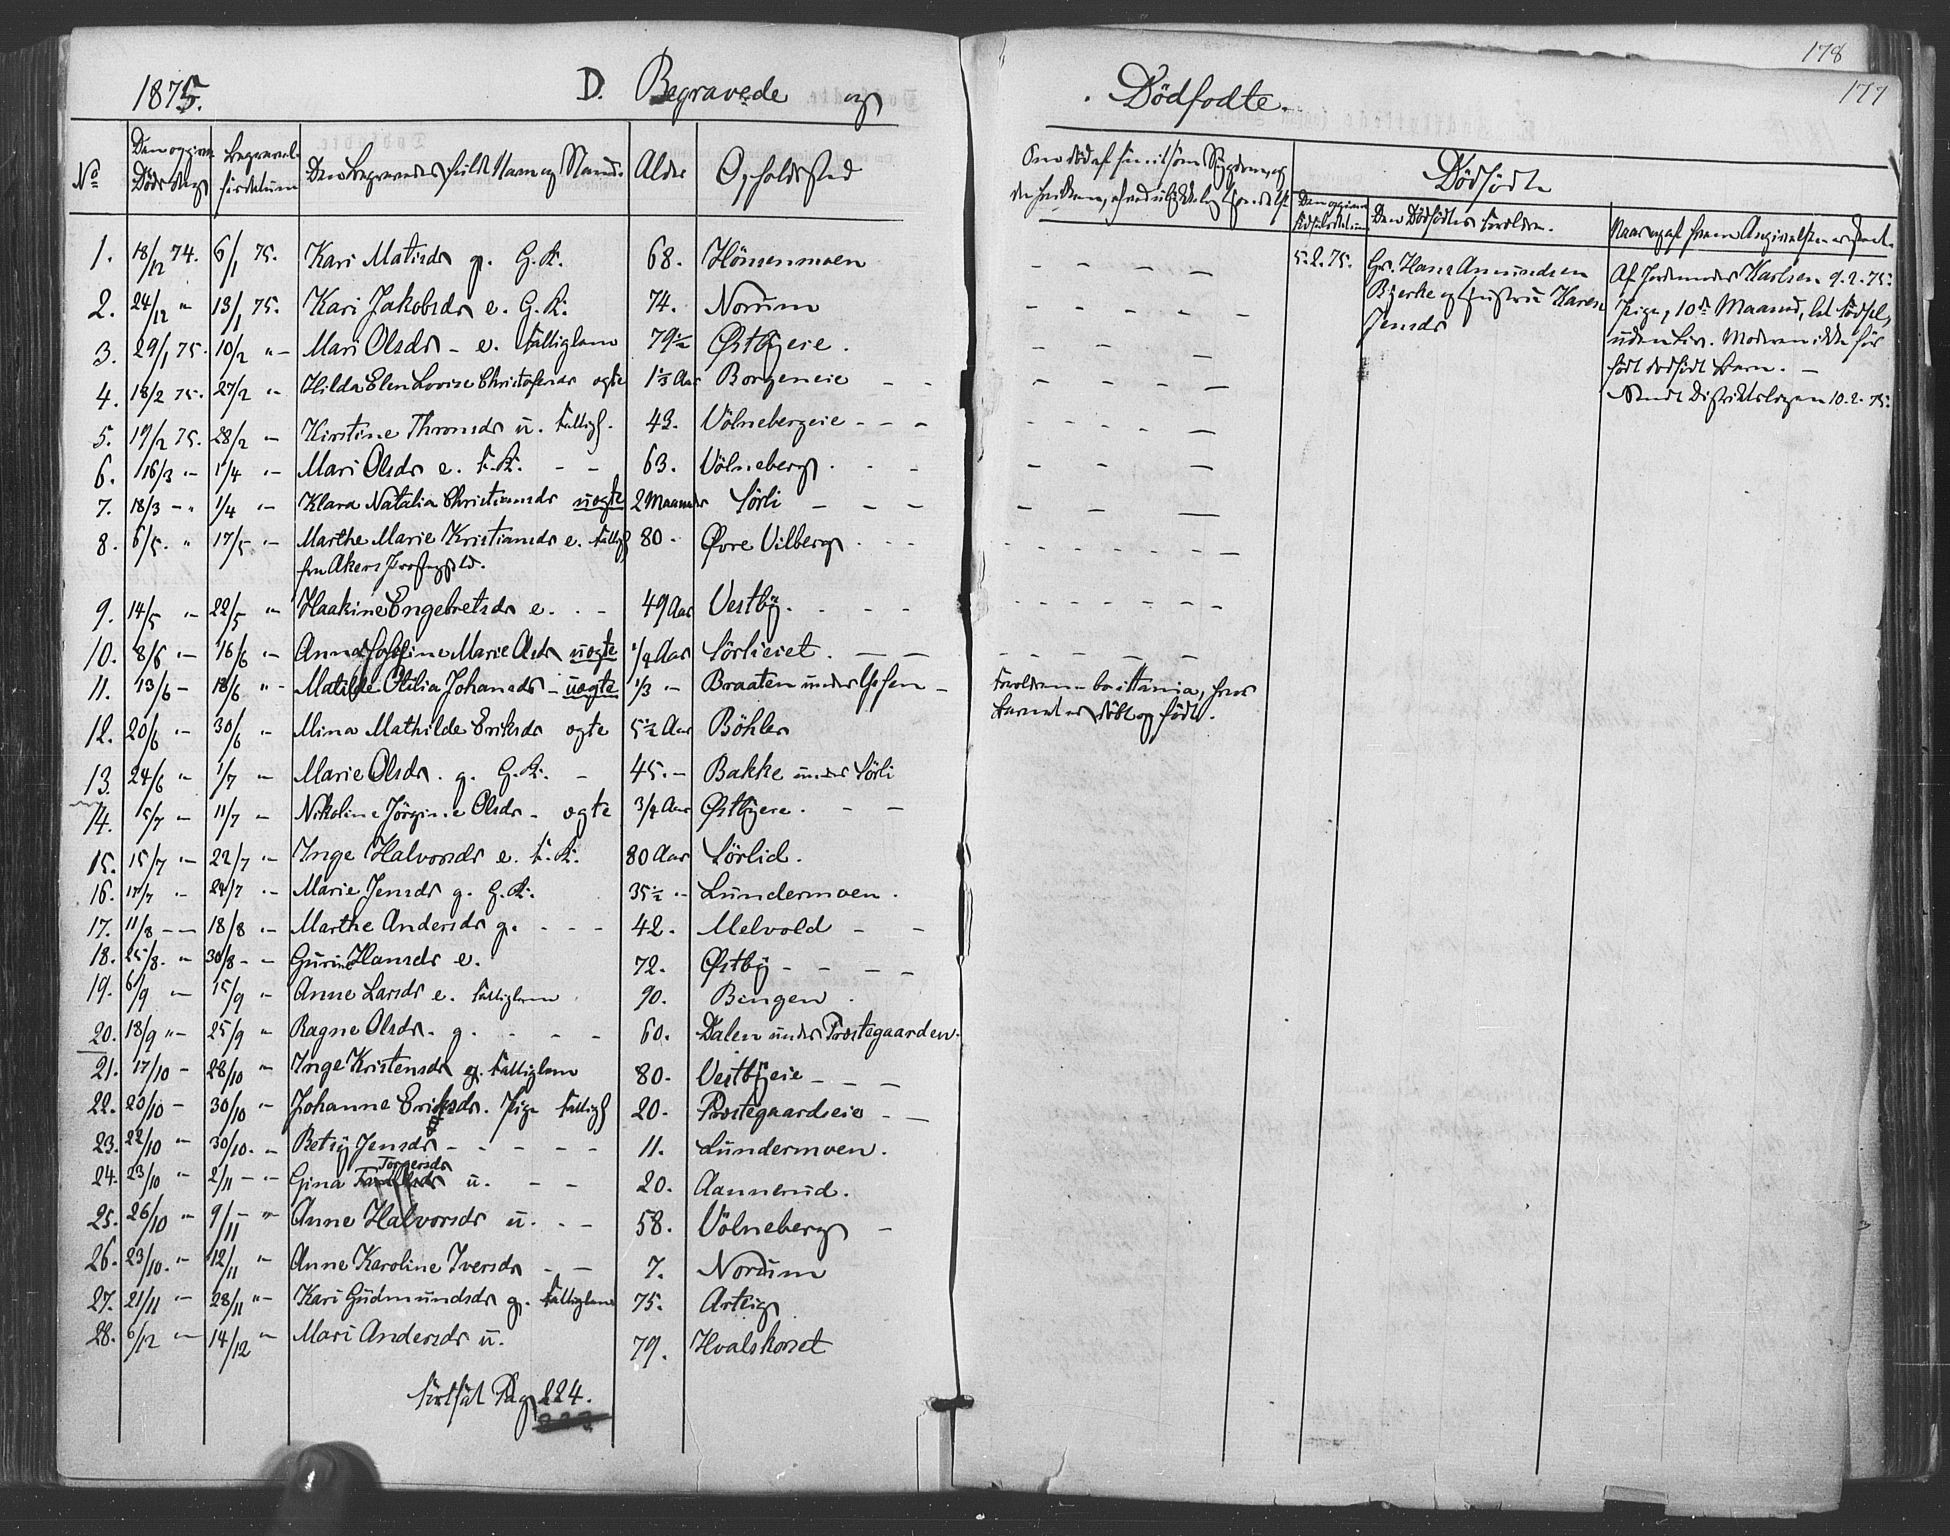 178
177
1875. D. Begravede og Dödfödte.
No
Den opgivne Döds dag
Begravelsesdatum
Den Begravedes fulde Navn og Stand.
Alder
Opholdssted
Dödfödte
Den Dödfödtes Forældre.
1. 18/12 74. 6/1 75. Kari Matisdr g. G.K. 68. Hönsenmoen
2. 24/12 " 13/1 75. Kari Jakobsdr e. G.K. 74. Norum
3. 29/1 75. 10/2 " Mari Olsdr - e. Fattiglem 79½ Østbyeie.
4. 18/2 75. 27/2 " Hilda Elen Lovise Christofersdr ægte 1⅓ Aar Borgeneie
5. 19/2 75. 28/2 " Kirstine Thronsdr u. Fattigl. 43. Völnebergeie
6. 16/3 " 1/4 " Mari Olsdr e. F.K. 63. Völneberg
7. 18/3 " 1/4 " Klara Natalia Christiansdr uægte 2 Maaneder Sörli
8. 6/5. " 17/5 " Marthe Marie Kristiansdr e. Fattigl 80. Øvre Vilberg
fra Akers Præstegjeld.
9. 14/5 " 22/5 " Haakine Engebretsdr e. 49 Aar Vestby.
10. 8/6 " 16/6 " Anna Josefine Marie Olsdr uægte 1/4 Aar Sörlieiet.
11. 13/6 - 18/6 " Matilde Otilia Johansdr - uægte 1/3 " Braaten under
Forældrene bo i Xania, hvor
Barnet er döbt og födt.
12. 20/6 " 30/6 " Mina Mathilde Eriksdr ægte 5½ Aar Böhler
13. 24/6 " 1/7 " Marie Olsdr. g. G.K. 45. Bakke under Sörli
14. 15/7 " 11/7 " Nikoline Jörgine Olsdr - ægte 3/4 Aar Østbyeie.
15. 15/7 " 22/7 " Inge Halvorsdr e. F.K. 80 Aar Sörlid.
16. 17/7 " 24/7 " Marie Jensdr g. G.K. 35½ " Lundermoen.
17. 11/8 - 18/8 " Marthe Andersdr g. 42. Melvold
18. 25/8. " 30/8 - Gurine Hansdr e. 72. Østby
19. 6/9 " 15/9 " Anne Larsdr e. Fattiglem 90. Bingen.
20. 18/9 " 25/9 " Ragne Olsdr. g. 60. Dalen under Præstegaarden.
21. 17/10 - 28/10 " Inge Kristensdr g. Fattiglem 80. Vestbyeie
22. 20/10 - 30/10 " Johanne Eriksdr. Pige Fattigl 20. Præstegaardseie
23. 22/10 " 30/10. " Betsy Jensdr 11. Lundermoen.
24. 23/10 " 2/11 " Gina Torgersdr u. 20. Aannerud.
25. 26/10 " 9/11 " Anne Halvorsdr u. 58. Völneberg
26. 23/10. " 12/11 " Anne Karoline Iversdr 7. Norum
27. 21/11 " 28/11 " Kari Gudmundsdr g. Fattiglem 75. Arteig
28. 6/12 " 14/12 " Mari Andersdr u. 79. Hvalskorset
Fortsat Pag 224.
5.2.75. Gr. Hans Amundsen
Bjerke og Hustru Karen
Jensdr
Af Jordemoder Karlsen 9.2.75.
Pige, 10de Maaned, let Födsel,
uden Liv. Moderen ikke för
födt dödfödt Barn.
Sendt Distriktslægen 10.2.75.